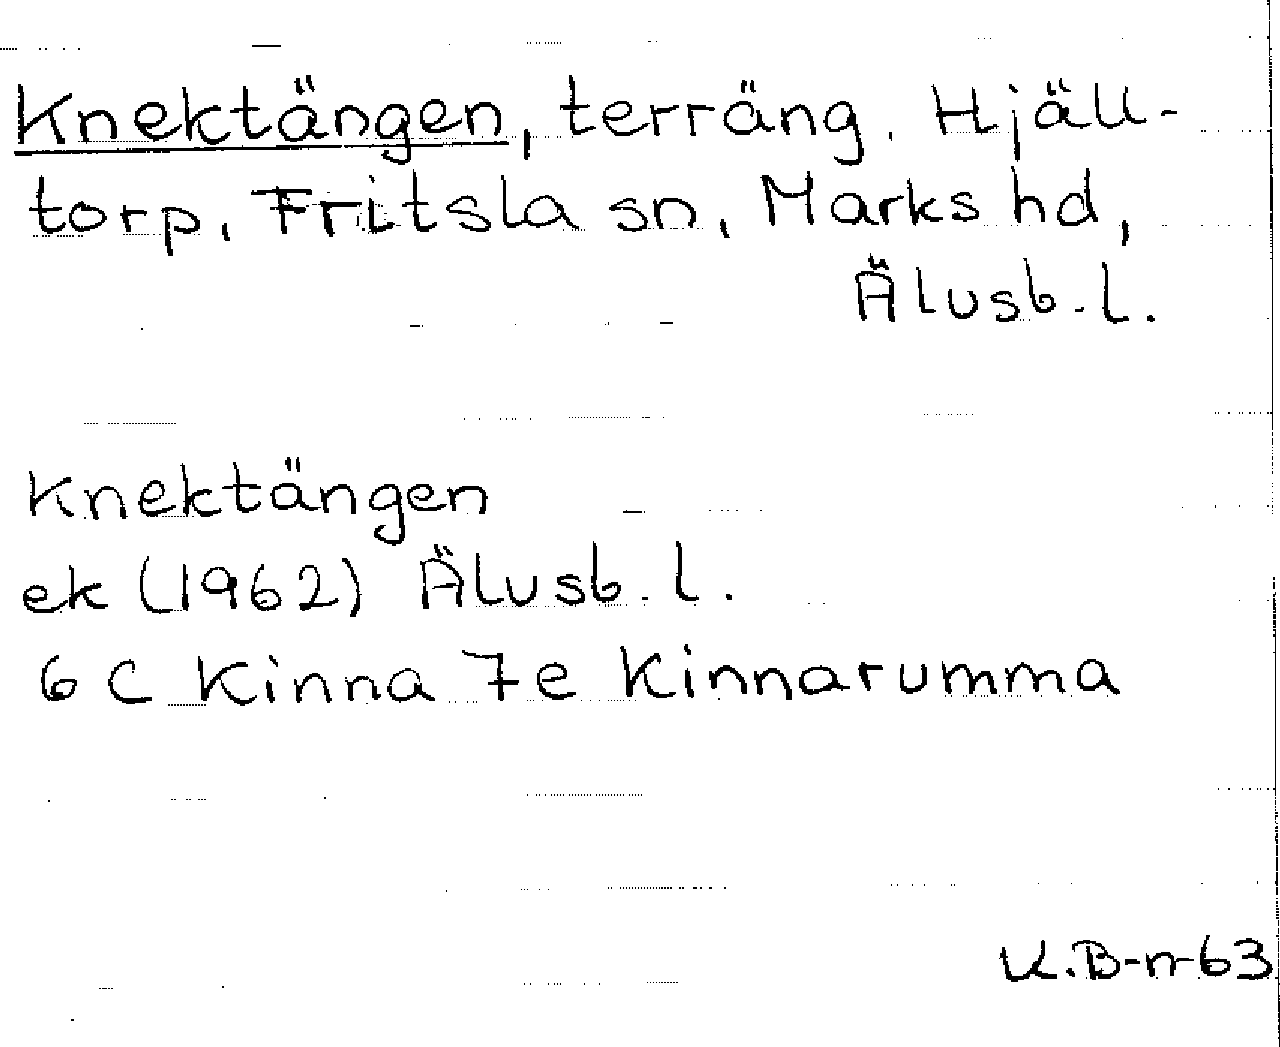 Knektängen, terräng. Hjäll-
torp, Fritsla sn, Marks hd,
Älvsb. l.
Knektängen
ek (1962) Älvsb. l.
6 C Kinna 7e Kinnarumma
K.B-n-63